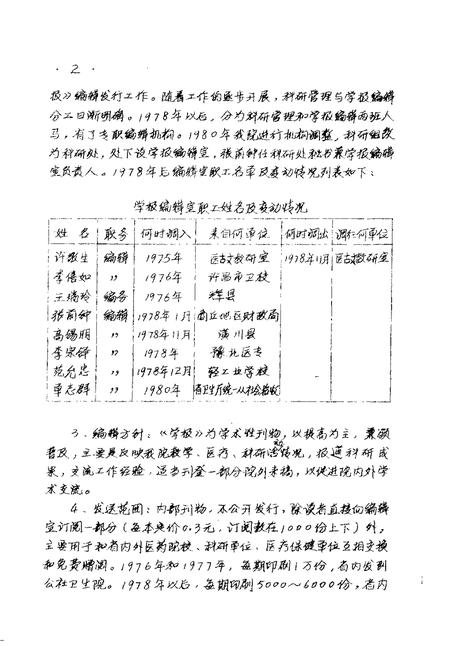 · 2 ·
报》编辑发行工作。随着工作的逐步开展，科研管理与学报编辑
分工日渐明确。1978年以后，分为科研管理和学报编辑两班人
马，有了专职编辑机构。1980年我院进行机构调整，科研组改
为科研处，处下设学报编辑室，张前钟任科研处秘书兼学报编辑
室负责人。1978年后编辑室职工名单及变动情况列表如下：
学报编辑室职工姓名及变动情况
姓 名 职务 何时调入 来自何单位 何时调出 调往何单位
许敬生 编辑 1975年 医古文教研室 1978年11月 医古文教研室
李倍如 〃 1976年 许昌市卫校
王瑞玲 编务 1976年 辉县
张前钟 编辑 1978年1月 商丘地区财政局
高锡朋 〃 1978年11月 潢川县
李宋铎 〃 1978年 豫北医专
范允忠 〃 1978年12月 轻工业学校
单志群 〃 1980年 省卫生厅统一从社会招收
3、编辑方针：《学报》为学术性刊物，以提高为主，兼顾
普及，主要是反映我院教学、医疗、科研活动情况，报道科研成
果，交流工作经验，适当刊登一部分院外来稿，以促进院内外学
术交流。
4、发送范围：内部刊物，不公开发行，除读者直接向编辑
室订阅一部分（每本定价0.3元，订阅数在1000份上下）外，
主要用于和省内外医药院校、科研单位、医疗保健单位互相交换
和免费赠阅。1976年和1977年，每期印刷1万份，省内发到
公社卫生院。1978年以后，每期印刷5000～6000份，省内